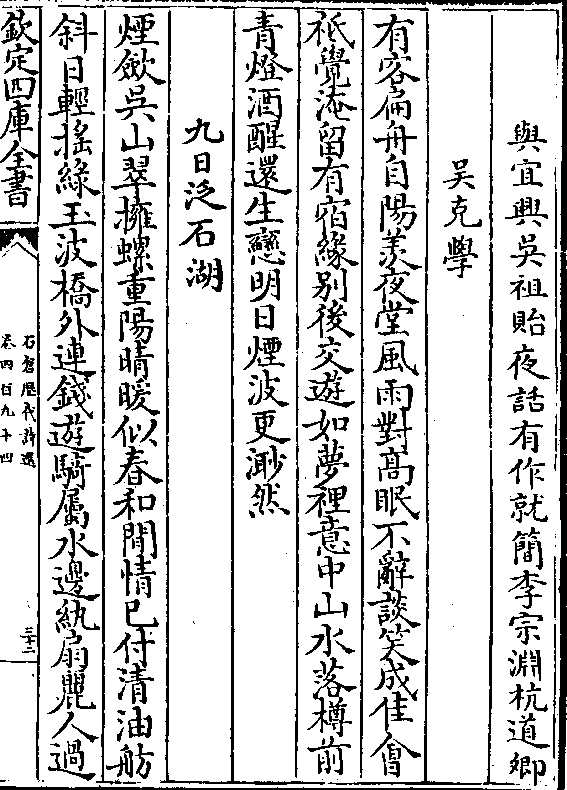 與宜興吳祖貽夜話有作就簡李宗淵杭道卿
吳克學
有客扁舟自陽羨夜堂風雨對髙眠不辭談笑成佳㑹
祇覺淹留有宿緣别後交遊如夢裡意中山水落樽前
青燈酒醒還生戀明日煙波更渺然
九日泛石湖
煙斂吳山翠擁螺重陽晴暖似春和閒情已付清油舫
斜日輕揺綠玉波橋外連錢遊騎屬水邊紈扇麗人過
欽定四庫全書
石倉歴代詩選
卷四百九十四
三十二